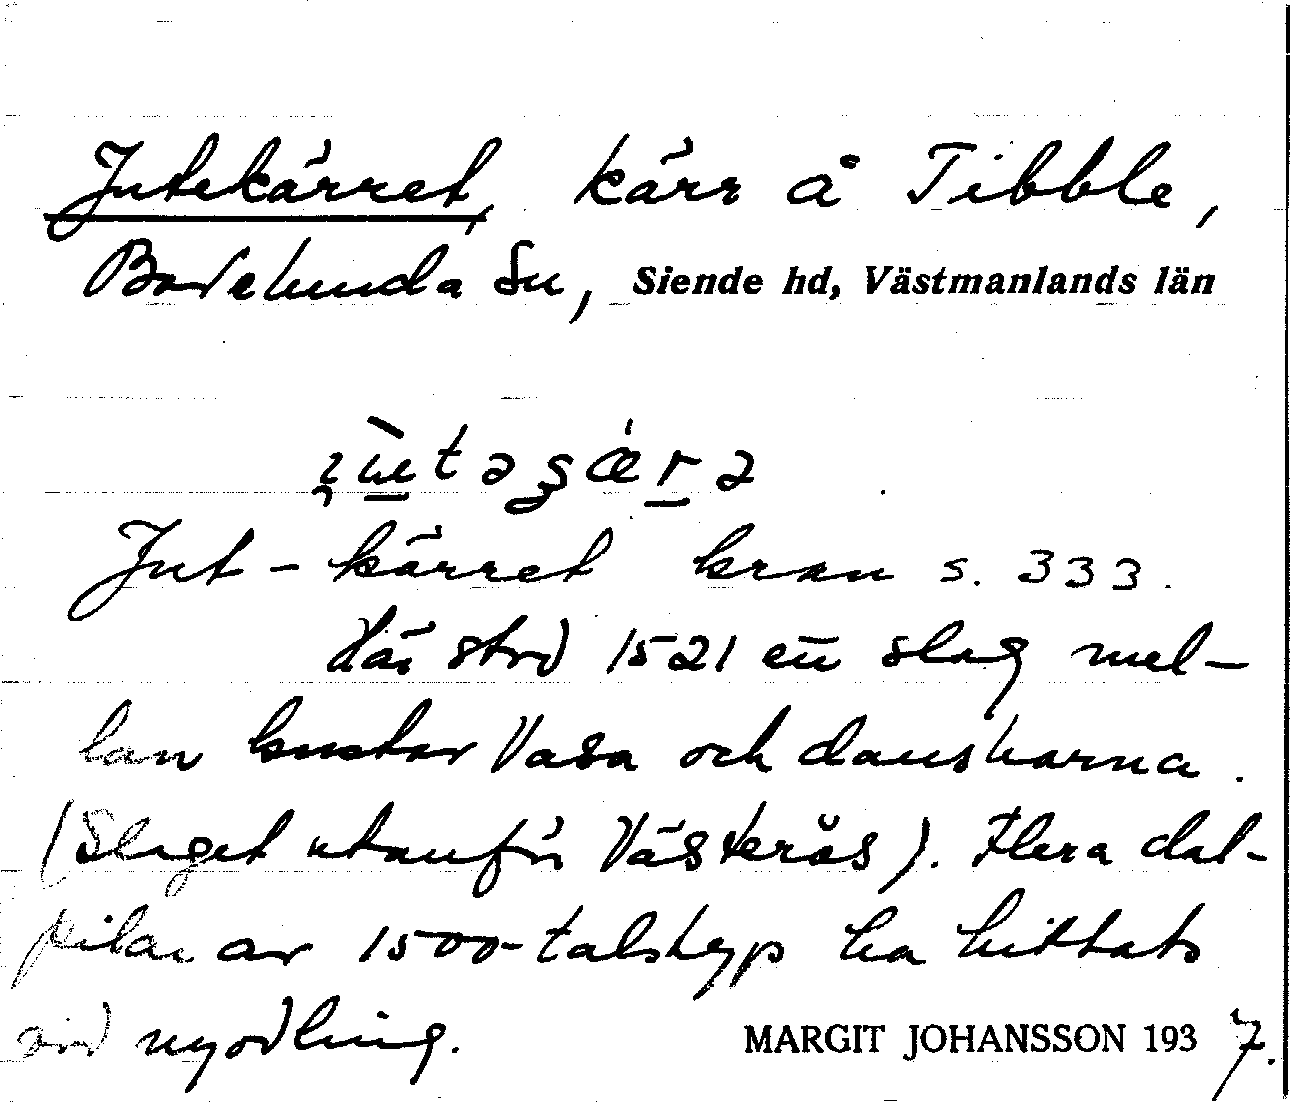 Jutekärret, kärr å Tibble,
Badelunda sn, Siende hd, Västmanlands län
Jut-kärret kran s. 333.
Här stod 1521 ett slag mel-
lan Gustav Vasa och danskarna.
(Slaget utanför Västerås). Flera dal-
pilar av 1500-talstyp ha hittats
vid nyodling.
MARGIT JOHANSSON 1937.